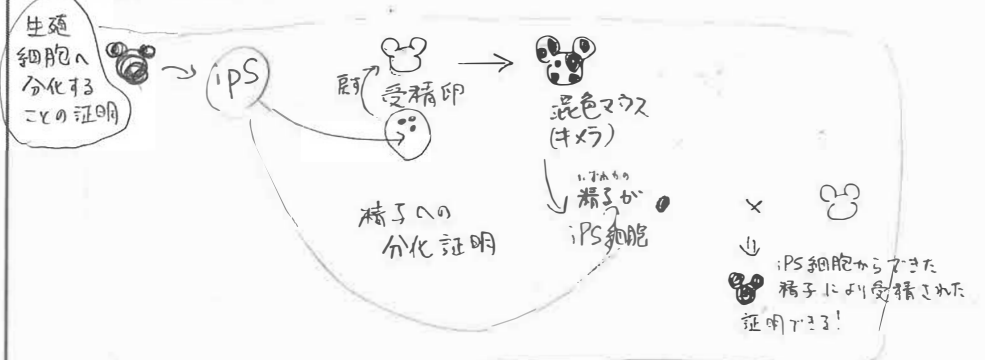 生殖
細胞へ
分化する
ことの証明
iPS
戻す
受精卵
混色マウス
(キメラ)
精子への
分化証明
いずれかの
精子が
iPS細胞
×
iPS細胞からできた
精子により受精された
証明できる!